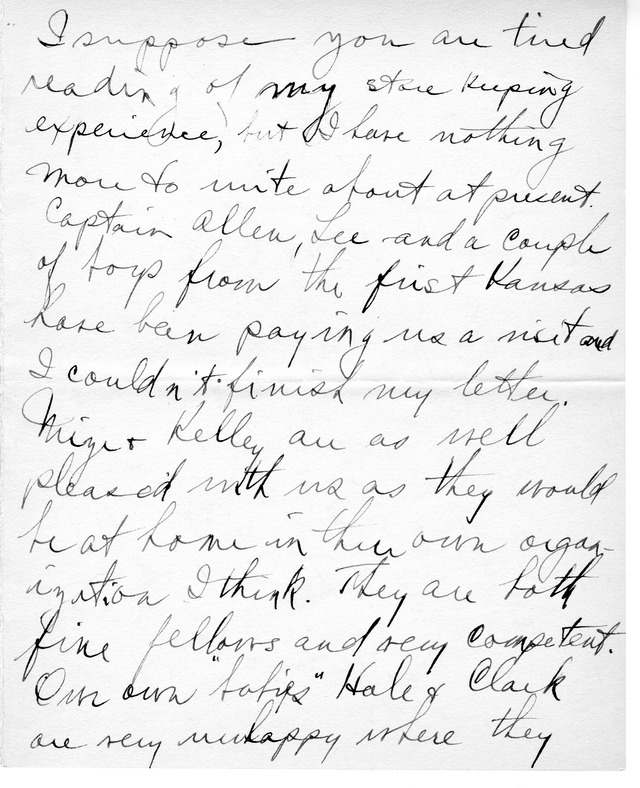 I suppose you are tired
reading of my store keeping
experience, but I have nothing
more to write about at present.
Captain Allen, Lee and a couple
of boys from the first Kansas
have been paying us a visit and
I couldn't finish my letter.
Mize & Kelley are as well
pleased with us as they would
be at home in their own organ-
ization I think. They are both
fine fellows and very competent.
Our own "babies" Hale & Clark
are very unhappy where they